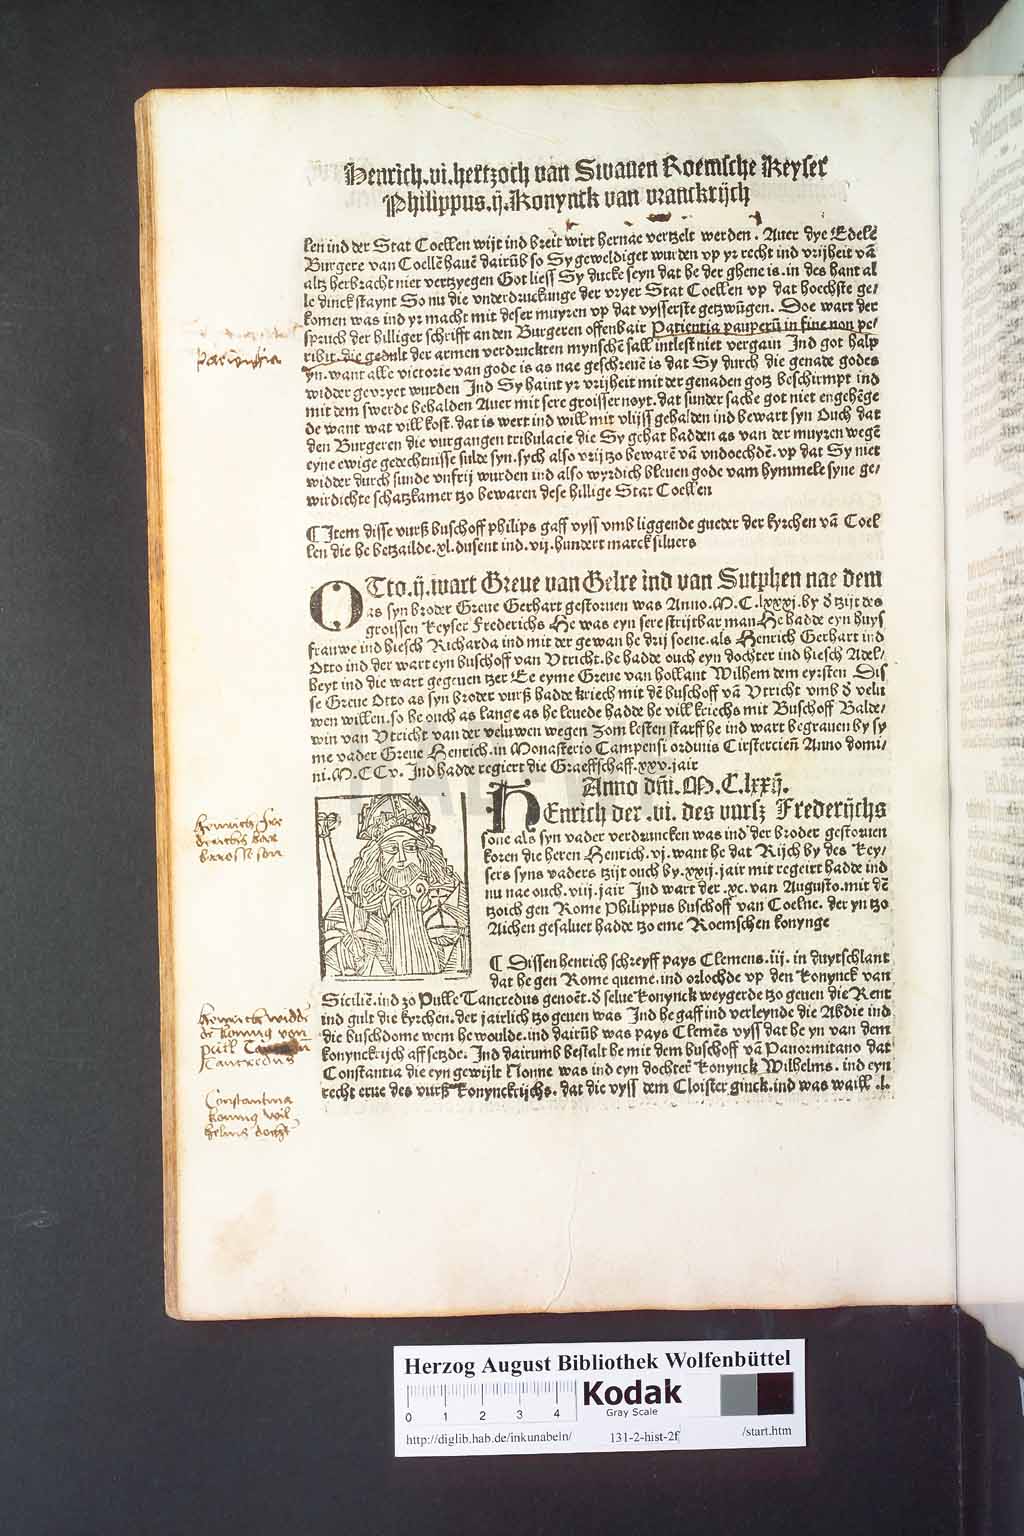 Henrich.vi.hertzoch van Swauen Roemsche Keyser
Philippus.ij.Konynck van vranckrijch
len ind der Stat Coellen wijt ind breit wirt hernae vertzelt werden. Auer dye Edelē
Burgere van Coellē hauē dairūb so Sy geweldiget wurden vp yr recht ind vrijheit vā
altz herbracht niet vertzyegen Got liess Sy ducke seyn dat he der ghene is.in des hant al
le dinck staynt So nu die vnderdruckunge der vryer Stat Coellen vp dat hoechste ge/
komen was ind yr macht mit deser muyren vp dat vysserste getzwūgen. Doe wart der
spruch der hilliger schrifft an den Burgeren offenbair Patientia pauperū in fine non pe/
ribit.die gedult der armen verdruckten mynschē sall intlest niet vergain Ind got halp
yn.want alle victorie van gode is as nae geschreuē is dat Sy durch die genade godes
widder gevryet wurden Ind Sy haint yr vrijheit mit der genaden gotz beschirmpt ind
mit dem swerde behalden Auer mit sere groisser noyt.dat sunder sache got niet engehēge
de want wat vill kost.dat is wert ind will mit vlijss gehalden ind bewart syn Ouch dat
den Burgeren die vurgangen tribulacie die Sy gehat hadden as van der muyren wegē
eyne ewige gedechtnisse sulde syn.sych also vrij tzo bewarē vā vndoechdē.vp dat Sy niet
widder durch sunde vnfrij wurden ind also wyrdich bleuen gode vam hymmele syne ge/
wirdichte schatzkamer tzo bewaren dese hillige Stat Coellen
¶ Item disse vurß buschoff philips gaff vyss vmb liggende gueder der kyrchen vā Coel
len die he betzailde.xl.dusent ind.vij.hundert marck siluers
OTto.ij.wart Greue van Gelre ind van Sutphen nae dem
as syn broder Greue Gerhart gestoruen was Anno.M.C.lxxxj.by ð tzijt des
groissen Keyser Frederichs He was eyn sere strijtbar man He hadde eyn huys
frauwe ind hiesch Richarda ind mit der gewan he drij soene.als Henrich Gerhart ind
Otto ind der wart eyn buschoff van Vtricht.he hadde ouch eyn dochter ind hiesch Adel/
heyt ind die wart gegeuen tzer Ee eyme Greue van hollant Wilhem dem eyrsten Dis
se Greue Otto as syn broder vurß hadde kriech mit dē buschoff vā Vtricht vmb ð velu
wen willen.so he ouch as lange as he leuede hadde he vill kriechs mit Buschoff Balde/
win van Vtricht van der veluwen wegen Zom lesten starff he ind wart begrauen by sy
me vader Greue Henrich.in Monasterio Campensi ordinis Cirstercieñ Anno domi/
ni.M.CCv. Ind hadde regiert die Graeffschaff.xxv.jair
Anno dñi.M.C.lxxij.
HEnrich der .vi. des vurß Frederijchs
sone als syn vader verdruncken was ind der broder gestoruen
koren die heren Henrich.vj.want he dat Rijch by des Key/
sers syns vaders tzijt ouch by.xxij.jair mit regeirt hadde ind
nu nae ouch.viij.jair Ind wart der.xc.van Augusto.mit dē
tzoich gen Rome Philippus buschoff van Coelne. der yn tzo
Aichen gesaluet hadde tzo eme Roemschen konynge
¶ Dissen henrich schreyff pays Clemens.iij. in duytschlant
dat he gen Rome queme.ind orlochde vp den Konynck van
Siciliē.ind zo Pulle Tancredus genoēt.ð selue Konynck weygerde tzo geuen die Rent
ind gult die kyrchen.der jairlich tzo geuen was Ind he gaff ind verleynde die Abdie ind
die buschdome wem he woulde.ind dairūb was pays Clemēs vyss dat he yn van dem
konynckrijch aff setzde. Ind dairumb bestalt he mit dem buschoff vā Panormitano dat
Constantia die eyn gewijlt Nonne was ind eyn dochter Konynck Wilhelms. ind eyn
recht erue des vurß Konynckrijchs. dat die vyss dem Cloister ginck.ind was waill .l.
Henrich Fre
derichs bar
barosse son
Henrich widde
de konnig von
Pull
Tancredus
Constantina
konnig wil
helms docht
Herzog August Bibliothek Wolfenbüttel
0 1 2 3 4
Kodak
Gray Scale
http://diglib.hab.de/inkunabeln/ 131-2-hist-2f /start.htm